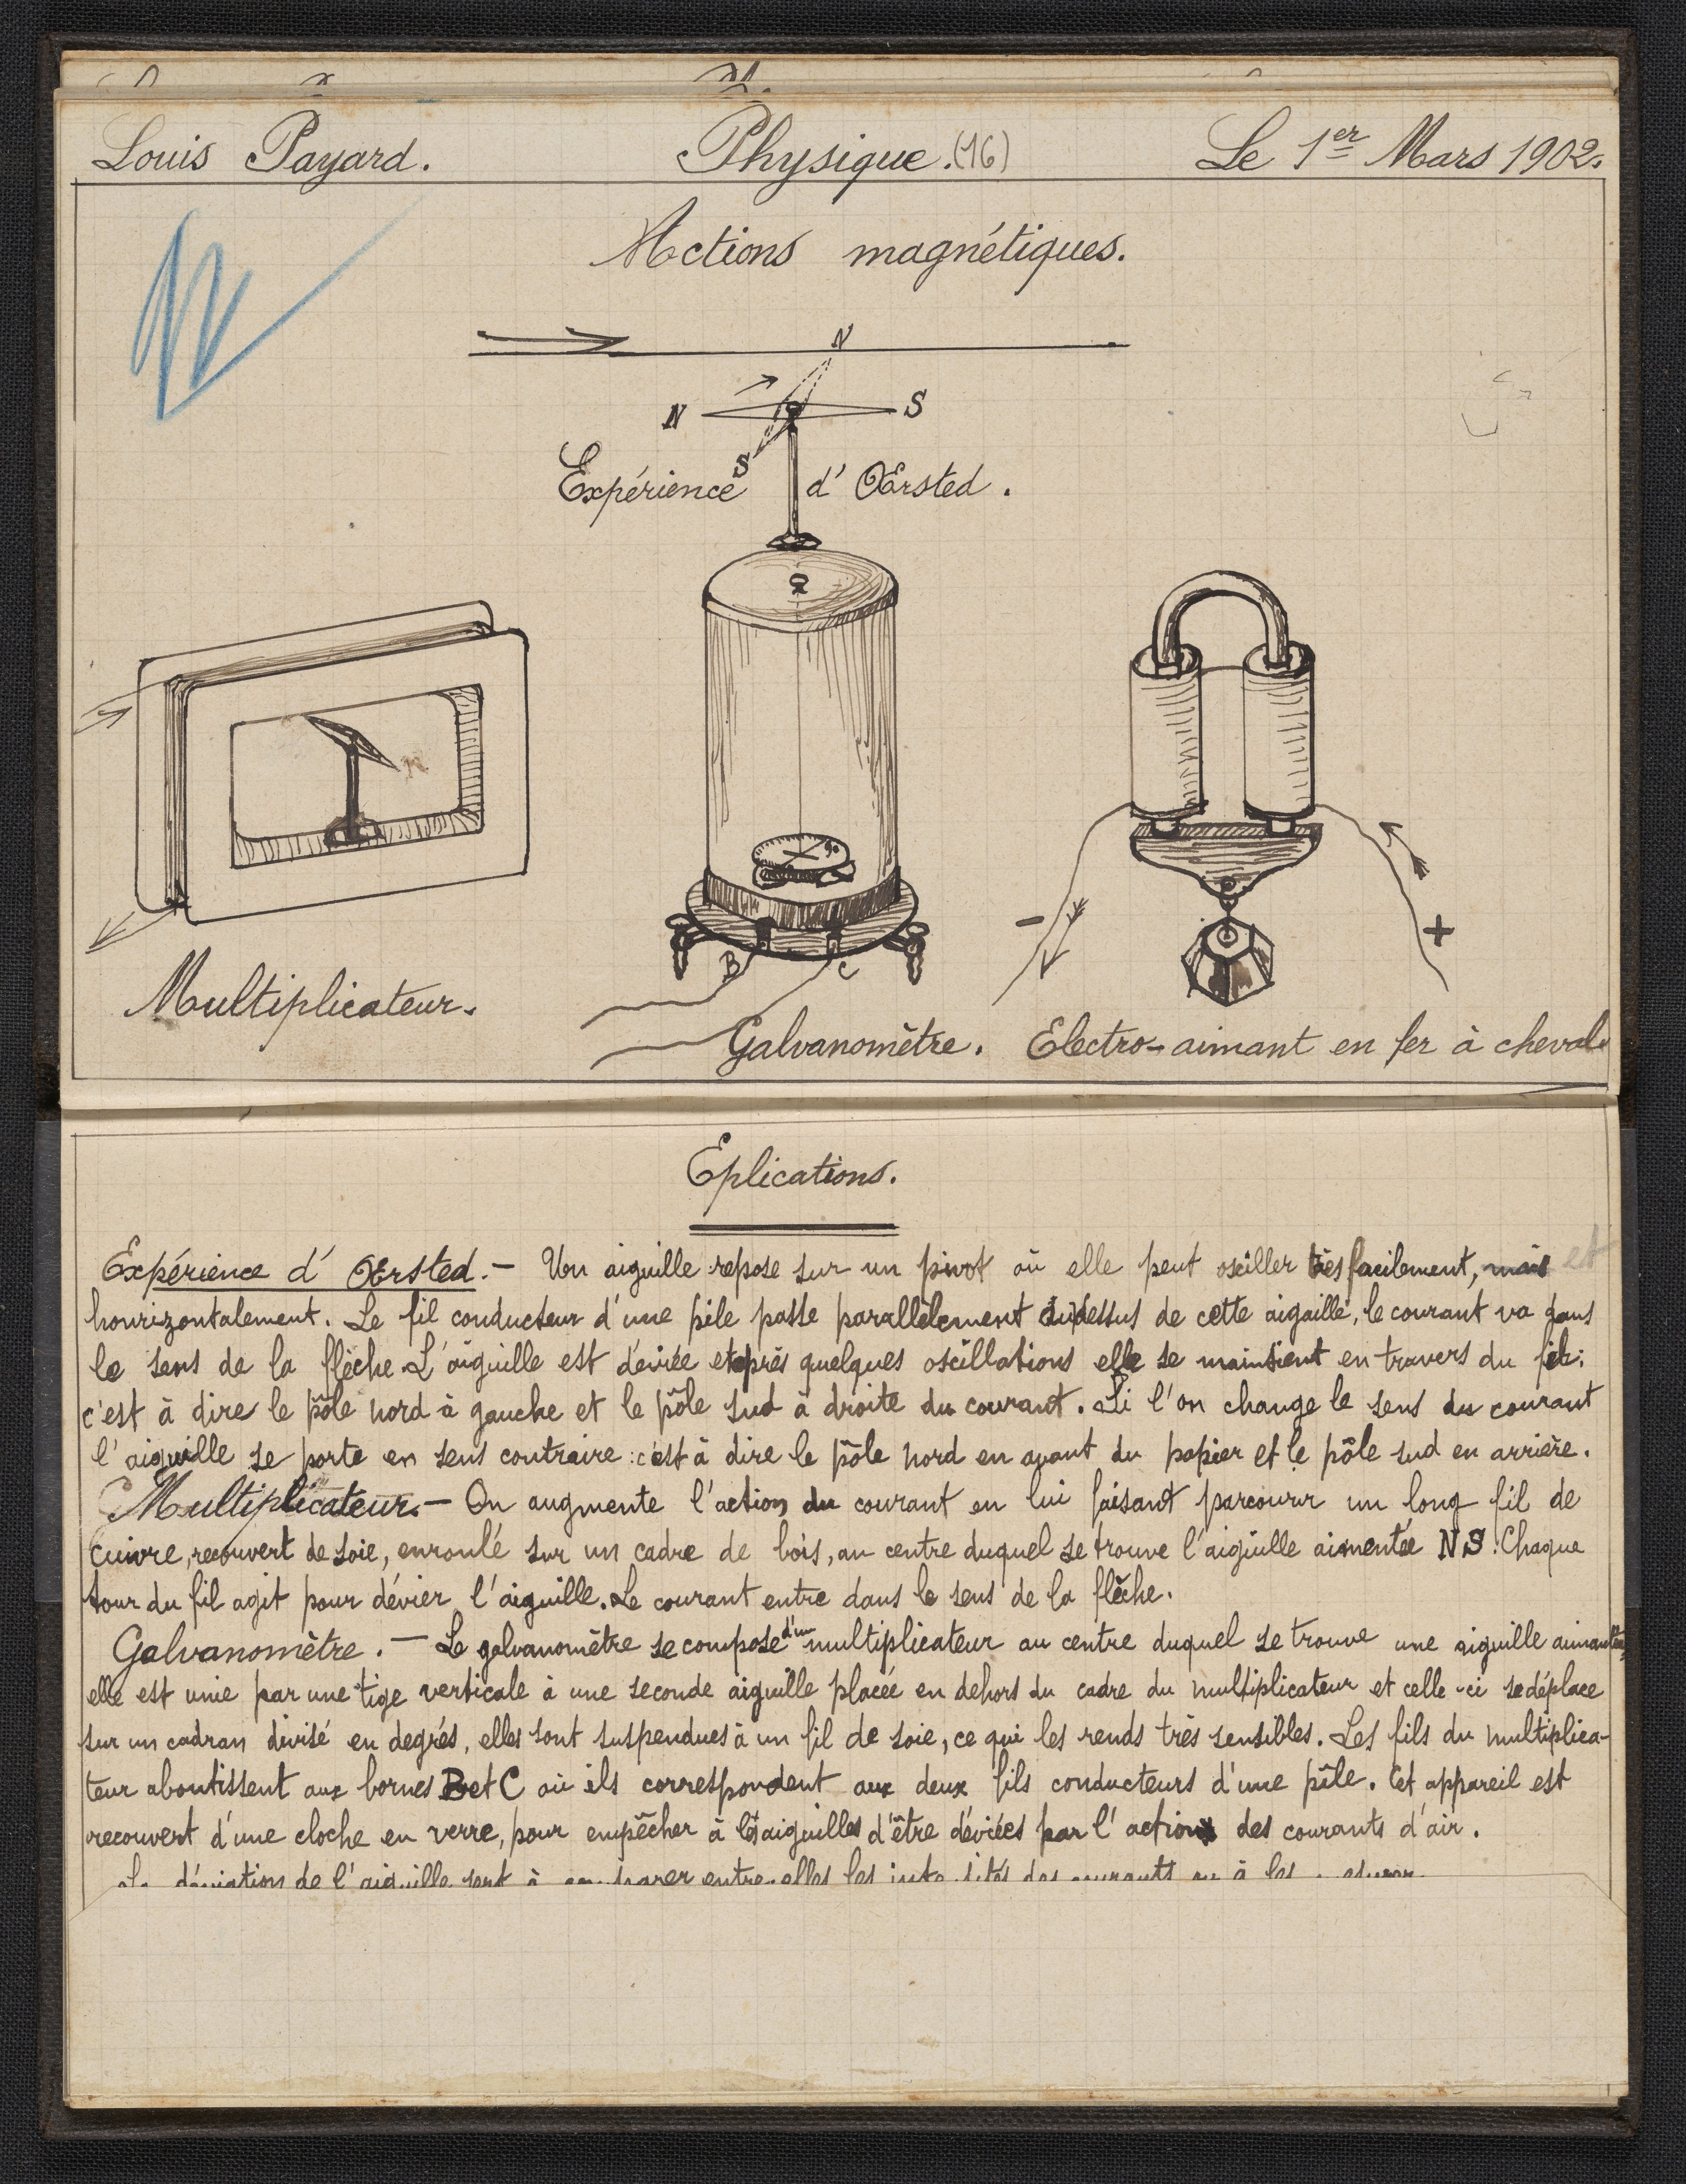 Louis Payard. Physique. (16) Le 1er Mars 1902.
Actions magnétiques.
N
N S
S
Expérience d' Œrsted.
90
B C
- +
Multiplicateur.
Galvanomètre. Electro-aimant en fer à cheval.
Eplications.
Expérience d' Œrsted. — Un aiguille repose sur un pivot où elle peut osciller très facilement, mais et
hourizontalement. Le fil conducteur d'une pile passe parallèlement dessus de cette aiguille, le courant va dans
le sens de la flèche. L'aiguille est déviée et après quelques oscillations elle se maintient en travers du fil:
c'est à dire le pôle nord à gauche et le pôle sud à droite du courant. Si l'on change le sens du courant
l'aiguille se porte en sens contraire: c'est à dire le pôle nord en avant du papier et le pôle sud en arrière.
Multiplicateur. — On augmente l'action du courant en lui faisant parcourir un long fil de
cuivre, recouvert de soie, enroulé sur un cadre de bois, au centre duquel se trouve l'aiguille aimentée NS. Chaque
tour du fil agit pour dévier l'aiguille. Le courant entre dans le sens de la flèche.
Galvanomètre. — Le galvanomètre se compose d'un multiplicateur au centre duquel se trouve une aiguille aimantée,
elle est unie par une tige verticale à une seconde aiguille placée en dehors du cadre du multiplicateur et celle-ci se déplace
sur un cadran divisé en degrés, elles sont suspendues à un fil de soie, ce qui les rends très sensibles. Les fils du multiplica-
teur aboutissent aux bornes B et C où ils correspondent aux deux fils conducteurs d'une pile. Cet appareil est
recouvert d'une cloche en verre, pour empêcher à les aiguilles d'être déviées par l'action des courants d'air.
La déviation de l'aiguille sert à comparer entre elles les intensités des courants ou à les mesurer.